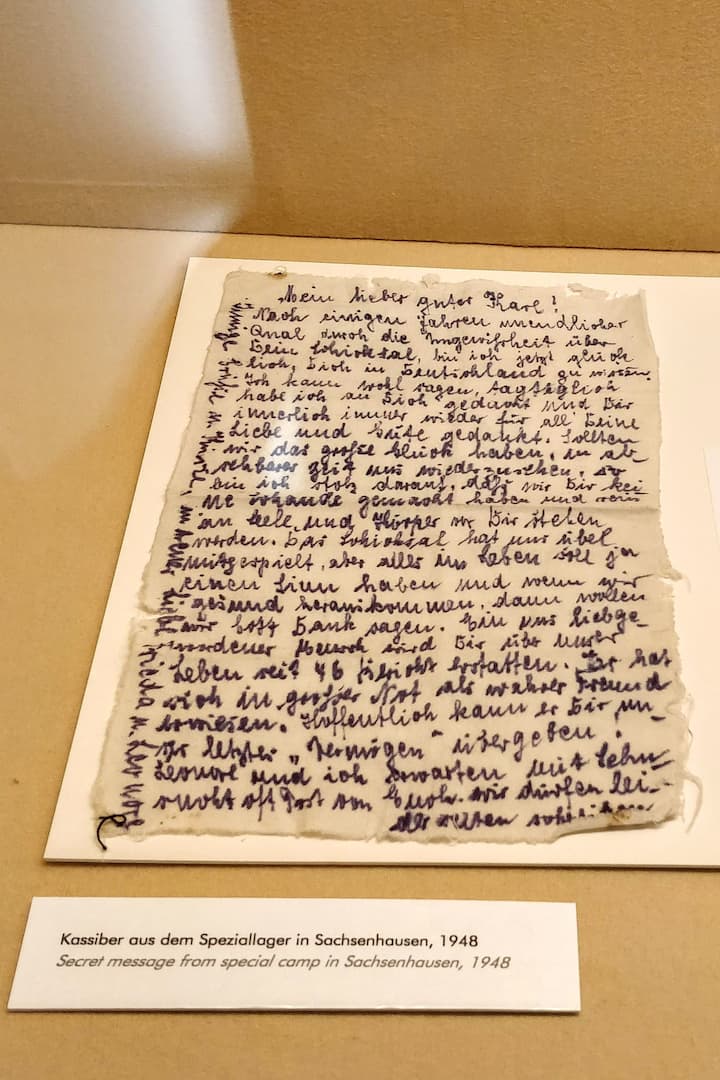 Mein lieber guter Karl!
Nach einigen Jahren unendlicher
Qual durch die Ungewißheit über
Dein Schicksal, bin ich jetzt glück
lich, Dich in Deutschland zu wissen.
Ich kann wohl sagen, tagtäglich
habe ich an Dich gedacht und Dir
innerlich immer wieder für all Deine
Liebe und Güte gedankt. Sollten
wir das große Glück haben, in ab-
sehbarer Zeit uns wiederzusehen, so
bin ich stolz darauf, daß wir Dir kei
ne Schande gemacht haben und rein
an Seele und Körper vor Dir stehen
werden. Das Schicksal hat uns übel
mitgespielt, aber alles im Leben soll ja
einen Sinn haben und wenn wir
gesund herauskommen, dann wollen
wir Gott Dank sagen. Ein uns liebge-
wordener Mensch wird Dir über unser
Leben seit 46 Bericht erstatten. Er hat
sich in großer Not als wahrer Freund
erwiesen. Hoffentlich kann er Dir un-
ser letztes „Vermögen" übergeben.
Leonore und ich erwarten mit Sehn-
sucht oft Post von Euch. Wir dürfen lei-
der selten schreiben
Innige Grüße u. Küsse, in Liebe
Kassiber aus dem Speziallager in Sachsenhausen, 1948
Secret message from special camp in Sachsenhausen, 1948